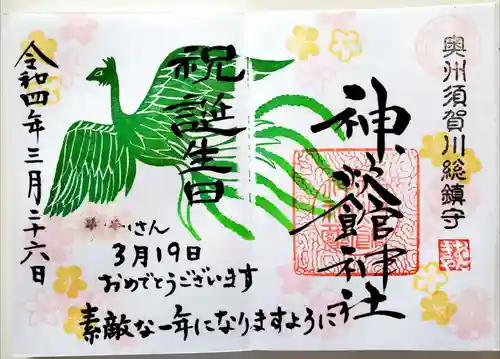 奥州須賀川総鎮守
神炊館神社
祝誕生日
令和四年三月二十六日
さん
3月19日
おめでとうございます
素敵な一年になりますように